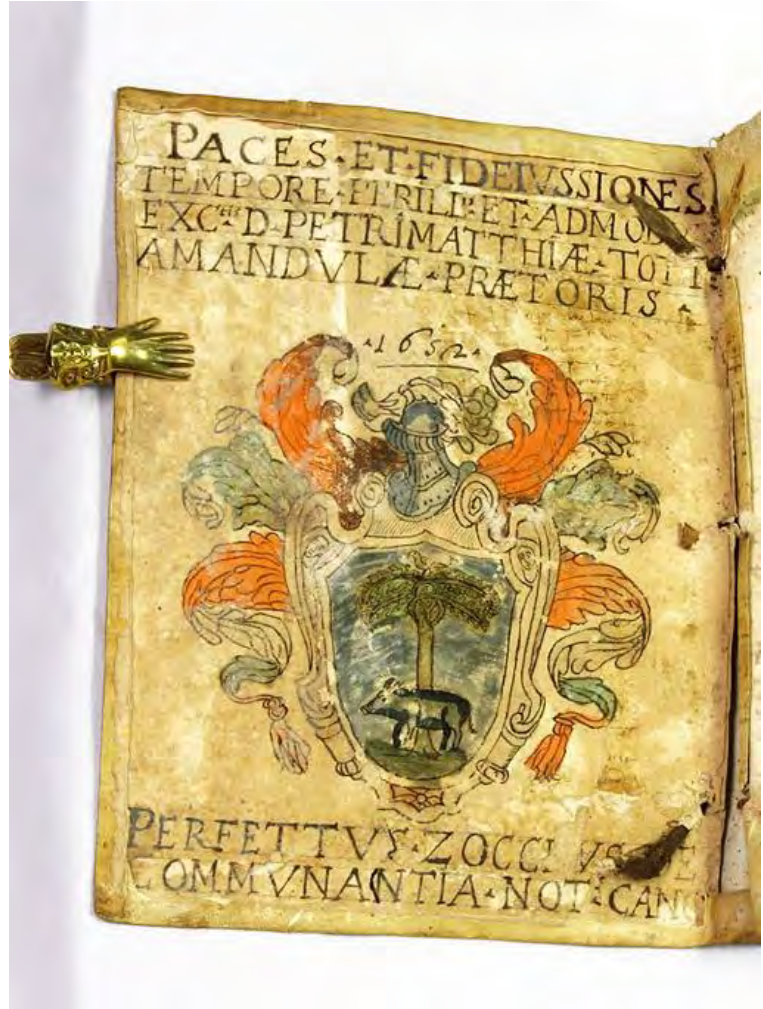 PACES·ET·FIDEIVSSIONES
TEMPORE·PERILL˙ᴵˢ·ET·ADMOD
EXCᵐⁱ·D·PETRI MATTHIÆ·TOTI
AMANDVLÆ·PRÆTORIS·
·1652·
PERFETTVS·ZOCCI
COMMVNANTIA·NOT·CANC